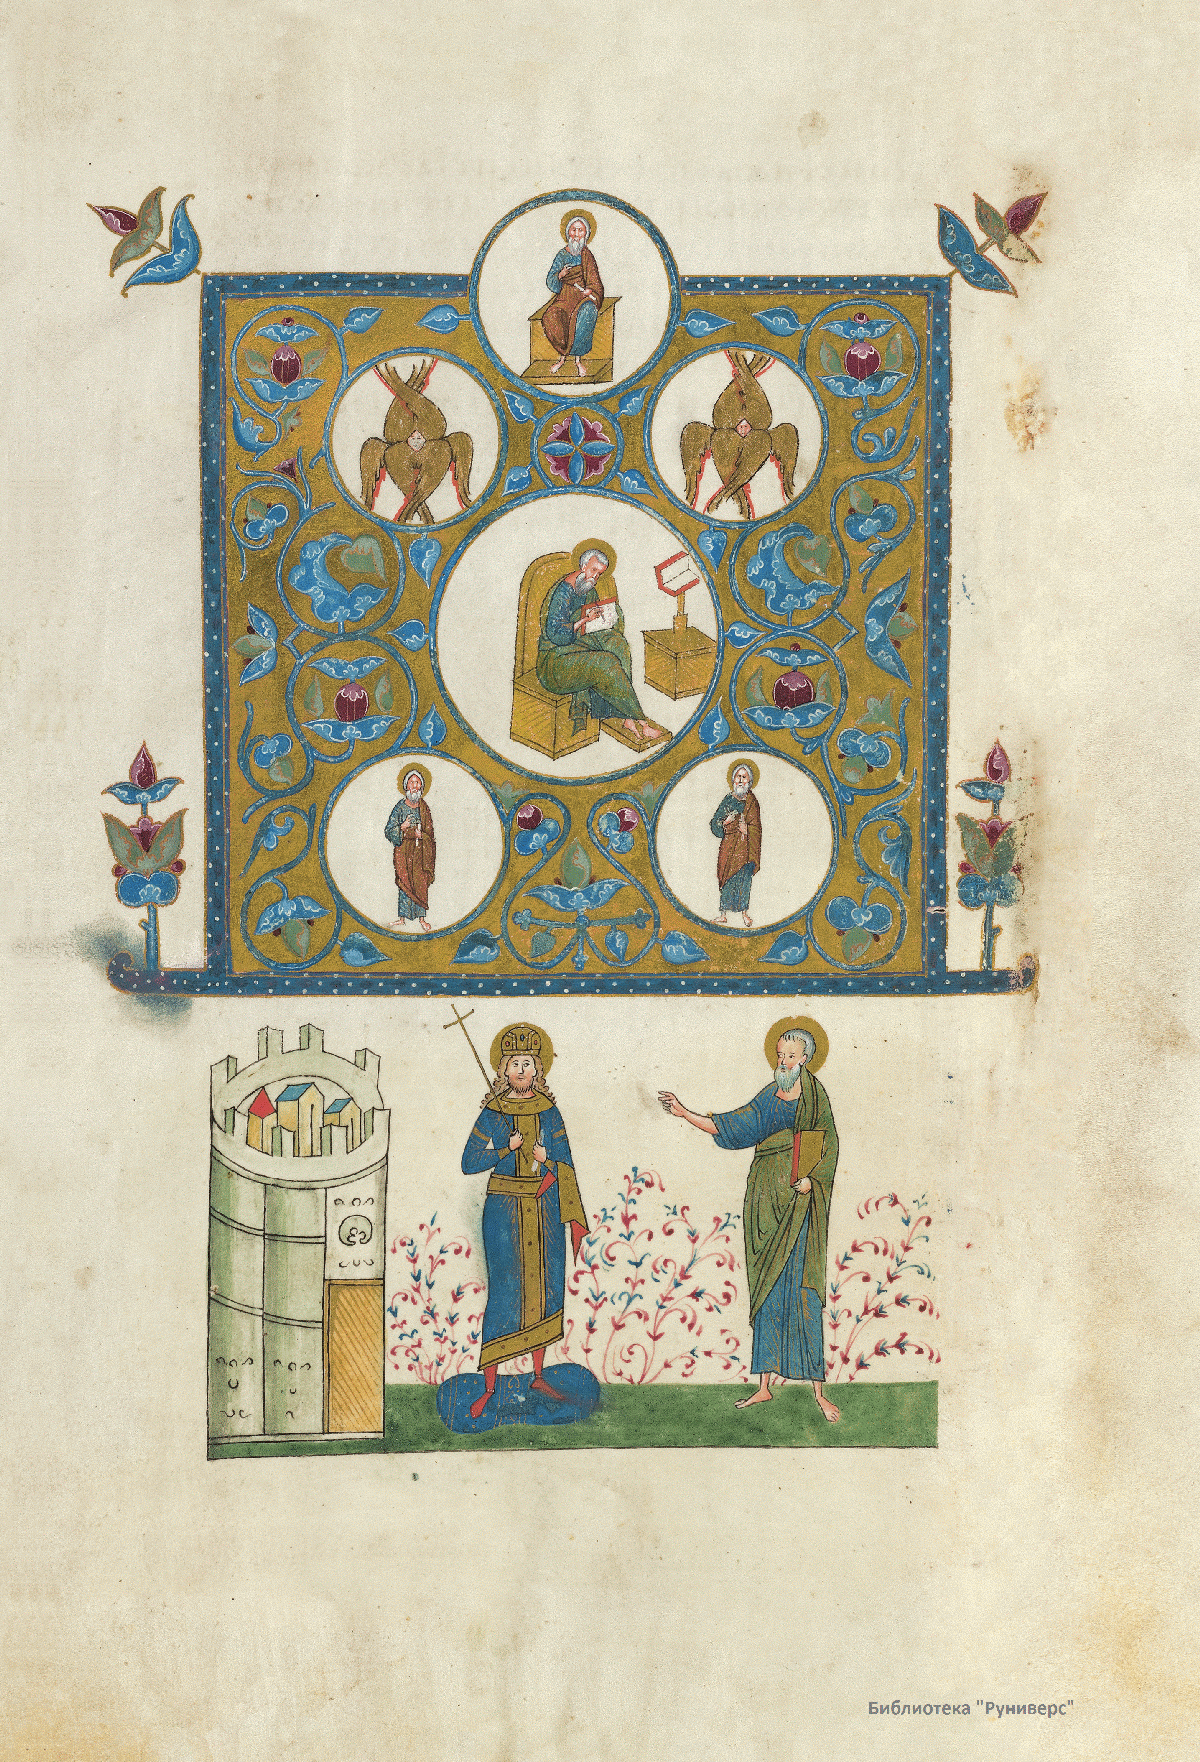 Библиотека "Руниверс"